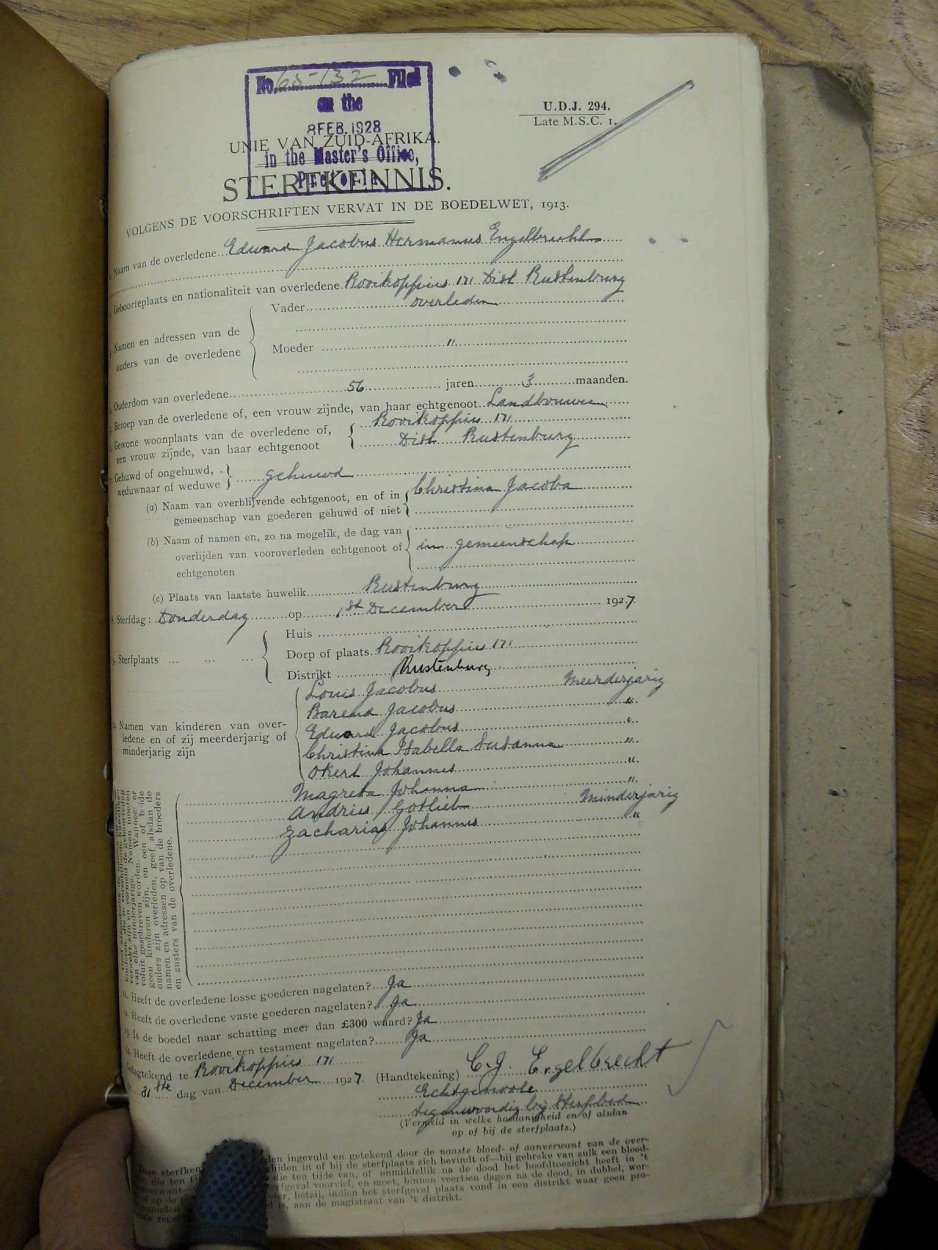 No. 65-132 Filed
on the
8 FEB. 1928
in the Master's Office,
Pretoria
U.D.J. 294.
Late M.S.C. 1.
UNIE VAN ZUID-AFRIKA.
STERFKENNIS.
VOLGENS DE VOORSCHRIFTEN VERVAT IN DE BOEDELWET, 1913.
Naam van de overledene Edward Jacobus Hermanus Engelbrecht
Geboorteplaats en nationaliteit van overledene Rooikoppies 171 Dist Rustenburg
Namen en adressen van de ouders van de overledene
Vader overleden
Moeder "
Ouderdom van overledene 56 jaren 3 maanden.
Beroep van de overledene of, een vrouw zijnde, van haar echtgenoot Landbouwer
Gewone woonplaats van de overledene of, Rooikoppies 171
een vrouw zijnde, van haar echtgenoot Dist Rustenburg
Gehuwd of ongehuwd,
weduwnaar of weduwe gehuwd
(a) Naam van overblijvende echtgenoot, en of in Christina Jacoba
gemeenschap van goederen gehuwd of niet
(b) Naam of namen en, zo na mogelik, de dag van
overlijden van vooroverleden echtgenoot of in gemeenschap
echtgenoten
(c) Plaats van laatste huwelik Rustenburg
Sterfdag: Donderdag op 1st December 1927
Sterfplaats
Huis
Dorp of plaats Rooikoppies 171
Distrikt Rustenburg
Namen van kinderen van over-
ledene en of zij meerderjarig of
minderjarig zijn
Louis Jacobus Meerderjarig
Barend Jacobus "
Eduard Jacobus "
Christina Isabella Susanna "
Okert Johannis "
Magreta Johanna "
Andries Gotlieb Minderjarig
Zacharias Johannis "
geen kinderen zijn, en een of beide
ouders zijn overleden, geef alsdan de
namen en adressen op van de broeders
en zusters van de overledene.
Heeft de overledene losse goederen nagelaten? Ja
Heeft de overledene vaste goederen nagelaten? Ja
Is de boedel naar schatting meer dan £300 waard? Ja
Heeft de overledene een testament nagelaten? Ja
te Rooikoppies 171
31ste dag van December 1927
(Handtekening) C. J. Engelbrecht
Echtgenoote
tegenwoordig bij sterfbed
(Vermeld in welke hoedanigheid en/of alsdan
op of bij de sterfplaats.)
Deze ingevuld en getekend door de naaste bloed- of aanverwant van de over-
in of bij de sterfplaats zich bevindt of—bij gebreke van zulk een bloed-
die ten tijde van, of onmiddellik na de dood het hoofdtoezicht heeft in 't
sterfgeval voorviel, en moet, binnen veertien dagen na de dood, in dubbel, wor-
hetzij, indien het sterfgeval plaats vond in een distrikt waar geen
is, aan de magistraat van 't distrikt.